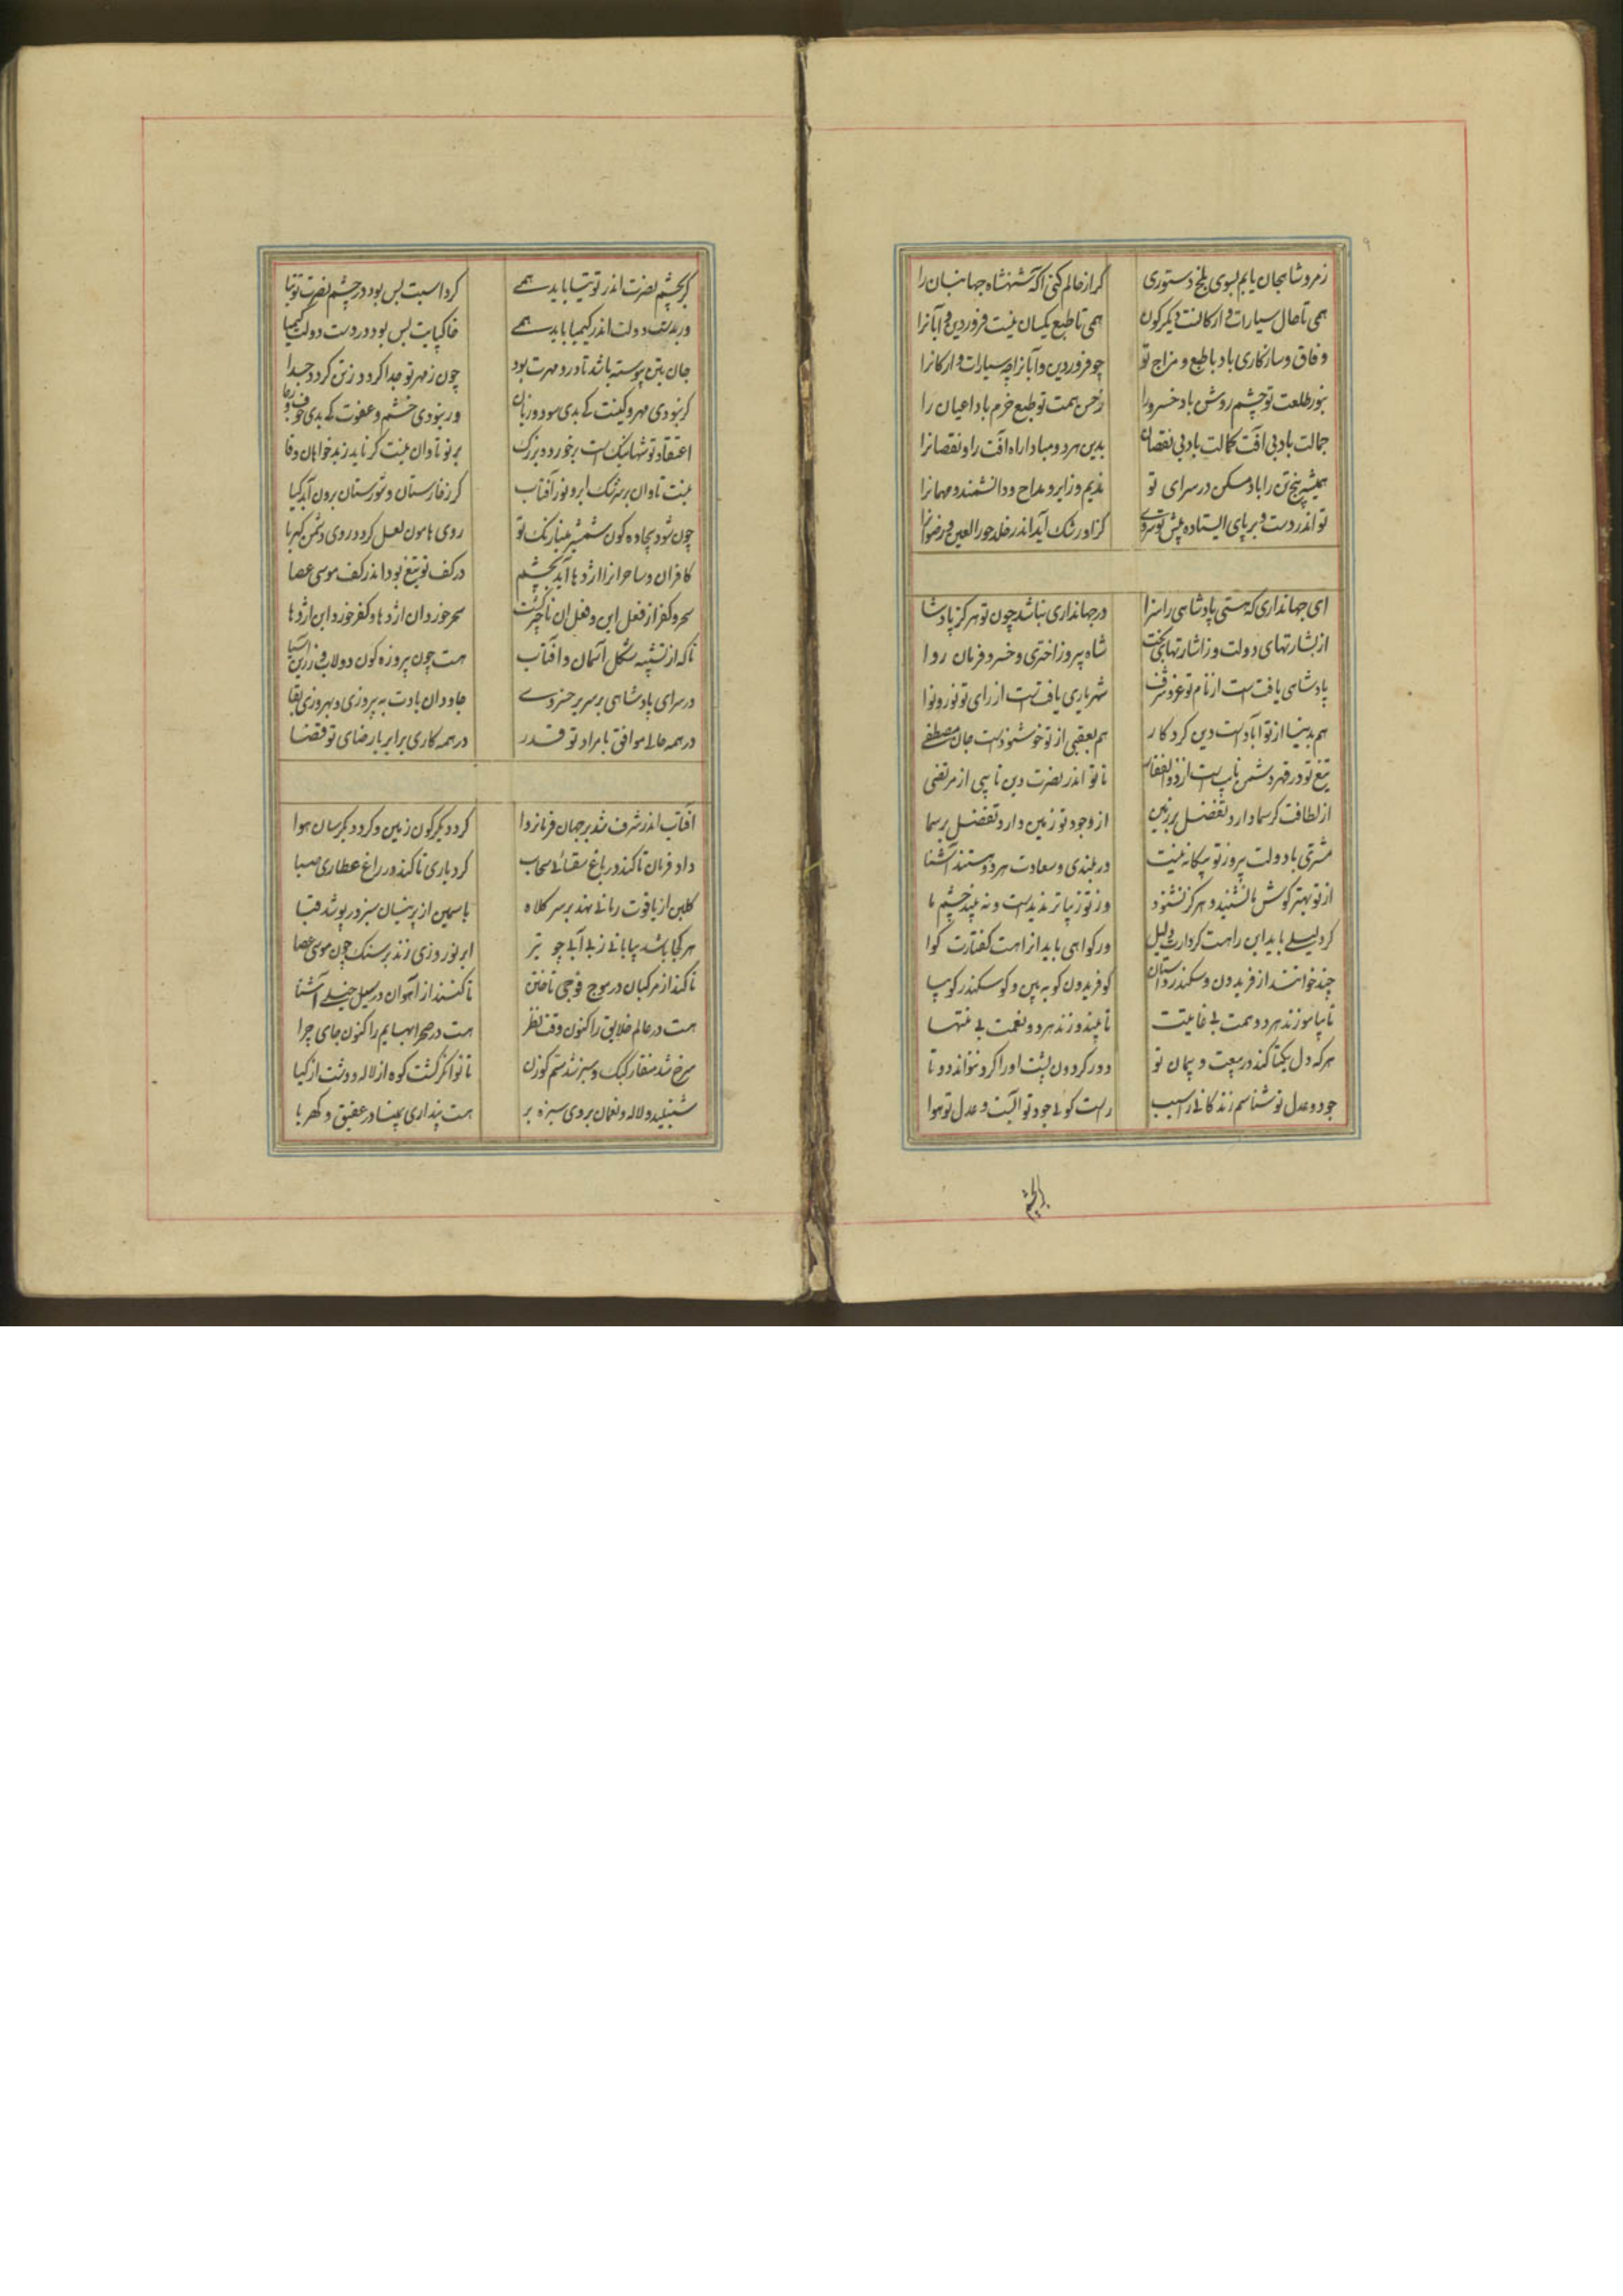 ۹
زمرو شاهجان یابم بسوی بلخ دستوری گر از حالم کنی آکه شهنشاه جهانبان را
همی تا حال سیارات و ارکانست دیکرکون همی تا طبع یکسان نیست فروردین و آبانرا
وفاق و سازکاری باد با طبع و مزاج تو چو فروردین و آبانرا چه سیارات و ارکانرا
بنور طلعت تو چشم روشن باد خسرو را ز حسن همت تو طبع خرم باد اعیان را
جمالت باد بی آفت کمالت باد بی نقصان بدین هر دو مبادا راه آفت را و نقصانرا
همیشه پنج تن را باد مسکن در سرای تو ندیم و زایر و مداح و دانشمند و مهمانرا
تو اندر دست و بر پای ایستاده پیش تو سروی کز او رشک آید اندر خلد حور العین و رضوانرا
ای جهانداری که هستی پادشاهی را سزا در جهانداری نباشد چون تو هرکز پادشا
از بشارتهای دولت وز اشارتهای بخت شاه پیروز اختری و خسرو فرمان روا
پادشاهی یافتست از نام تو عز و شرف شهریاری یافتست از رای تو نور و نوا
هم بدنیا از تو آبادست دین کردکار هم بعقبی از تو خوشنودست جان مصطفی
تیغ تو در قهر دشمن نایب است از ذوالفقار تا تو اندر نصرت دین نایبی از مرتضی
از لطافت کر سما دارد تفضل بر زمین از وجود تو زمین دارد تفضل بر سما
مشتری با دولت پیروز تو بیکانه نیست در بلندی و سعادت هر دو هستند آشنا
از تو بهتر کوش ما نشنید و هرکز نشنود وز تو زیباتر ندیدست و نه بیند چشم ما
کر دلیلی باید این را هست کردارت دلیل ور کواهی باید آنرا هست کفتارت کوا
چند خوانند از فریدون و سکندر داستان کو فریدون کو به بین و کو سکندر کو بیا
تا بیاموزند هر دو همت بی غایتت تا ببیند وزند هر دو نعمت بی منتها
هر که دل یکتا کند در بیعت و پیمان تو دور کردون پشت او را کرد نتواند دو تا
جود و عدل تو شناسم زندکانی را سبب راست کوئی جود تو آبست و عدل تو هوا
کر بچشم نصرت اندر توتیا باید همی کرد اسبت بس بود در چشم نصرت توتیا
ور بدست دولت اندر کیمیا باید همی خاکپایت بس بود در دست دولت کیمیا
جان بتن پیوسته باشد تا درو مهرت بود چون ز مهر تو جدا کردد ز تن کردد جدا
کر نبودی مهر و کینت کی بدی سود و زیان ور نبودی خشم و عفوت کی بدی خوف و رجا
اعتقاد تو شها نیکست بر خورد و بزرک بر تو تاوان نیست کر ناید ز بدخواهان وفا
نیست تاوان بر سرشک ابر و نور آفتاب کر ز خارستان و شورستان برون آید کیا
چون شود بیجاده کون شمشیر مینارنک تو روی هامون لعل کردد روی دشمن کهربا
کافران و ساحرانرا اژدها آید بچشم در کف تو تیغ بود اندر کف موسی عصا
سحر و کفر از فعل این و فعل آن ناچیز کشت سحر خورد آن اژدها و کفر خورد این اژدها
تا که از تشبیه شکل آسمان و آفتاب هست چون پیروزه کون دولاب و زرین آسیا
در سرای پادشاهی بر سریر خسروی جاودان بادت به پیروزی و بهروزی بقا
در همه حالی موافق با مراد تو قدر در همه کاری برابر با رضای تو قضا
آفتاب اندر شرف شد بر جهان فرمانروا کرد دیکرکون زمین و کرد دیکرسان هوا
داد فرمان تا کند در باغ سقائی سحاب کرد یاری تا کند در راغ عطاری صبا
کلبن از یاقوت رمانی نهد بر سر کلاه یاسمین از پرنیان سبز در پوشد قبا
هر کجا باشد بیابانی ز بی آبی چو تیر ابر نوروزی زند بر سنک چون موسی عصا
تا کند از مرکبان در موج فوجی تاختن تا کنند از آهوان در سیل خیلی آشنا
هست در عالم خلایق را کنون وقت نظر هست در صحرا بهایم را کنون جای چرا
سرخ شد منقار کبک و سبز شد سم کوزن تا توانکر کشت کوه از لاله و دشت از کیا
شنبلید و لاله و نعمان بروی سبزه بر هست پنداری بمینا در عقیق و کهربا
کر بچشم